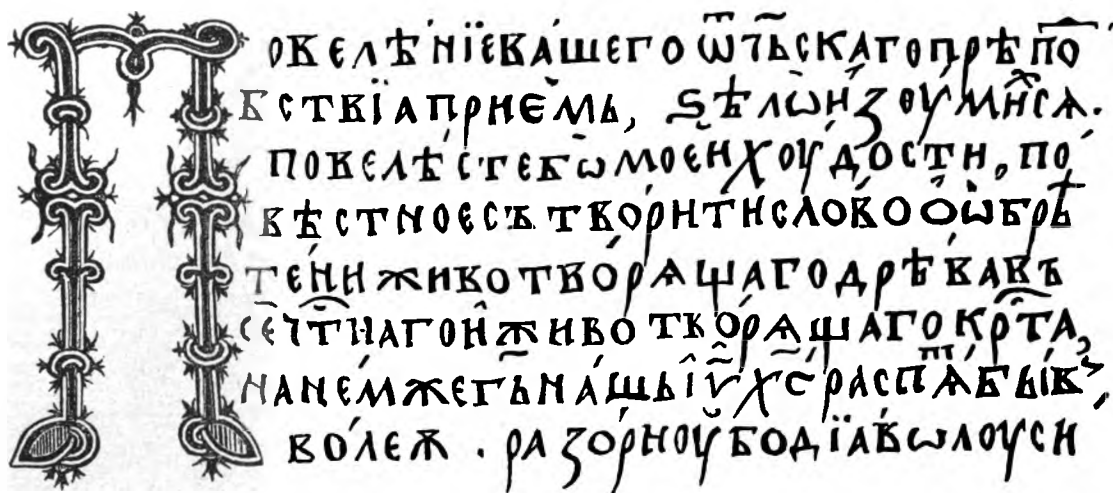 Повелѣ́нїе ва́шего ѿт҃ьска́го прѣпо́
бствїа прие́мь, ѕѣлѡ̀ и҆ꙁоуми́хсѧ.
повелѣ́сте бѡ̀ мое́и хоу́дости, по́
вѣстное сътво́рити сло́во о ѡбрѣ
те́ни животво́рѧщаго дрѣ́ва въ
сечт҃наго и҆ животво́рѧщаго кр҃та,
на не́мже гь҃ на́шь і҆у҃ х҃с распѧ́т бы́въ,
во́леѫ. раꙁо́ри оу҆бо дїа́вѡлоу си